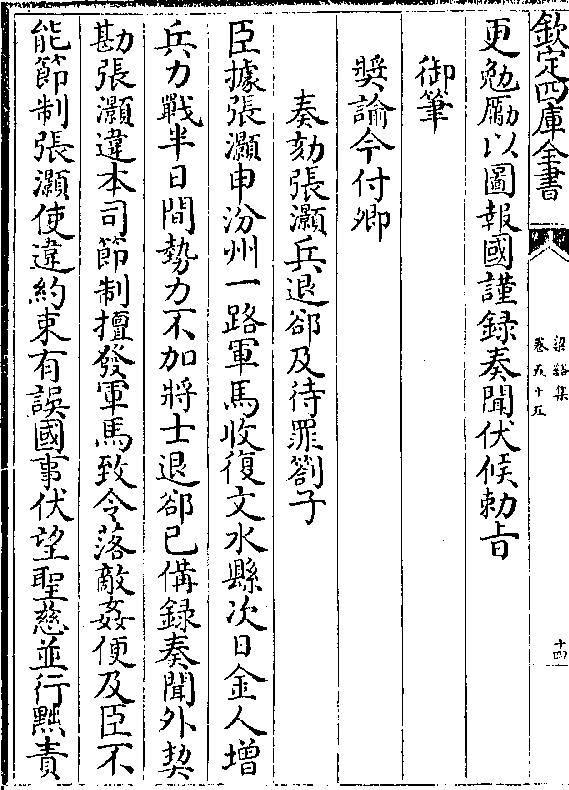 欽定四庫全書
梁谿集
卷五十五
十四
更勉勵以圖報國謹録奏聞伏候勅㫖
御筆
奬諭今付卿
奏劾張灝兵退郤及待罪劄子
臣據張灝申汾州一路軍馬收復文水縣次日金人增
兵力戰半日間勢力不加將士退郤已偹録奏聞外契
勘張灝違本司節制擅發軍馬致令落敵姦便及臣不
能節制張灝使違約束有誤國事伏望聖慈並行黜責